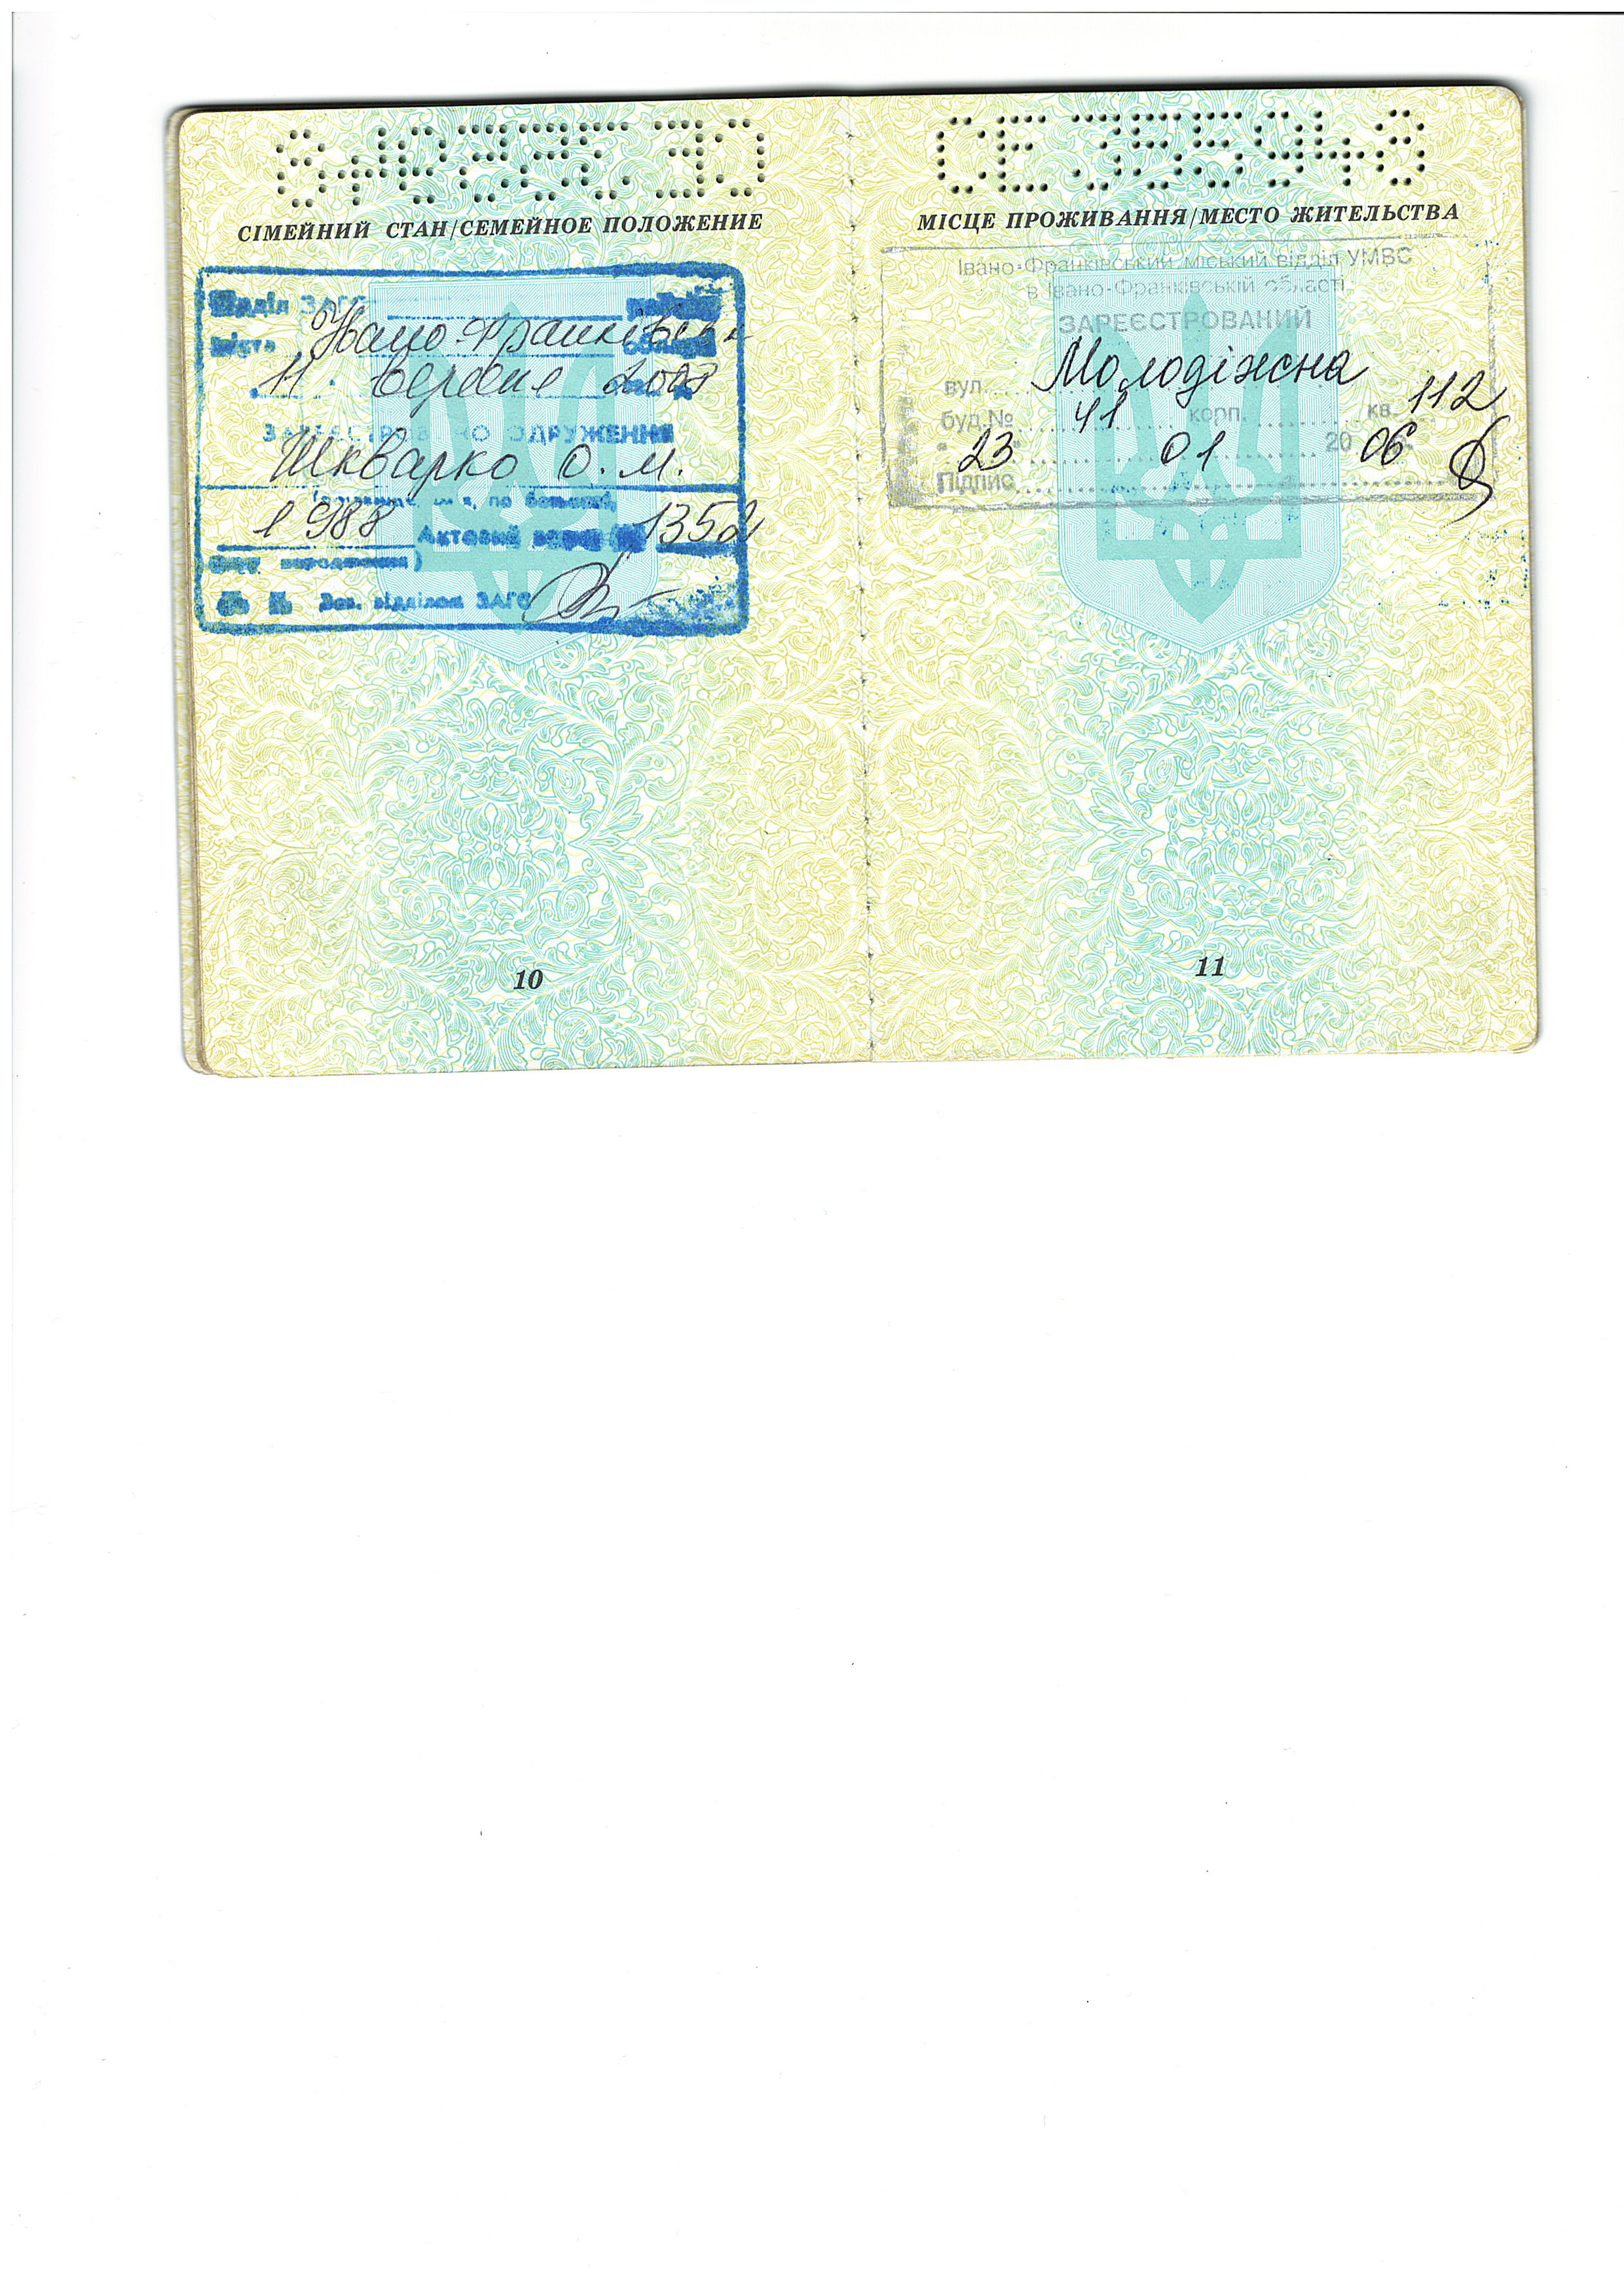 СІМЕЙНИЙ СТАН/СЕМЕЙНОЕ ПОЛОЖЕНИЕ
Відділ ЗАГС
міста Івано-Франківськ
11 вересня 2008
ЗАРЕЄСТРОВАНО ОДРУЖЕННЯ
Шкварко О. М.
1988 Актовий запис № 1352
(Рік народження)
Зав. відділом ЗАГС
10
СЕ 355943
МІСЦЕ ПРОЖИВАННЯ/МЕСТО ЖИТЕЛЬСТВА
Івано-Франківський міський відділ УМВС
в Івано-Франківській області
ЗАРЕЄСТРОВАНИЙ
вул. Молодіжна
буд.№ 41 корп. кв. 112
23 01 20 06
Підпис
11